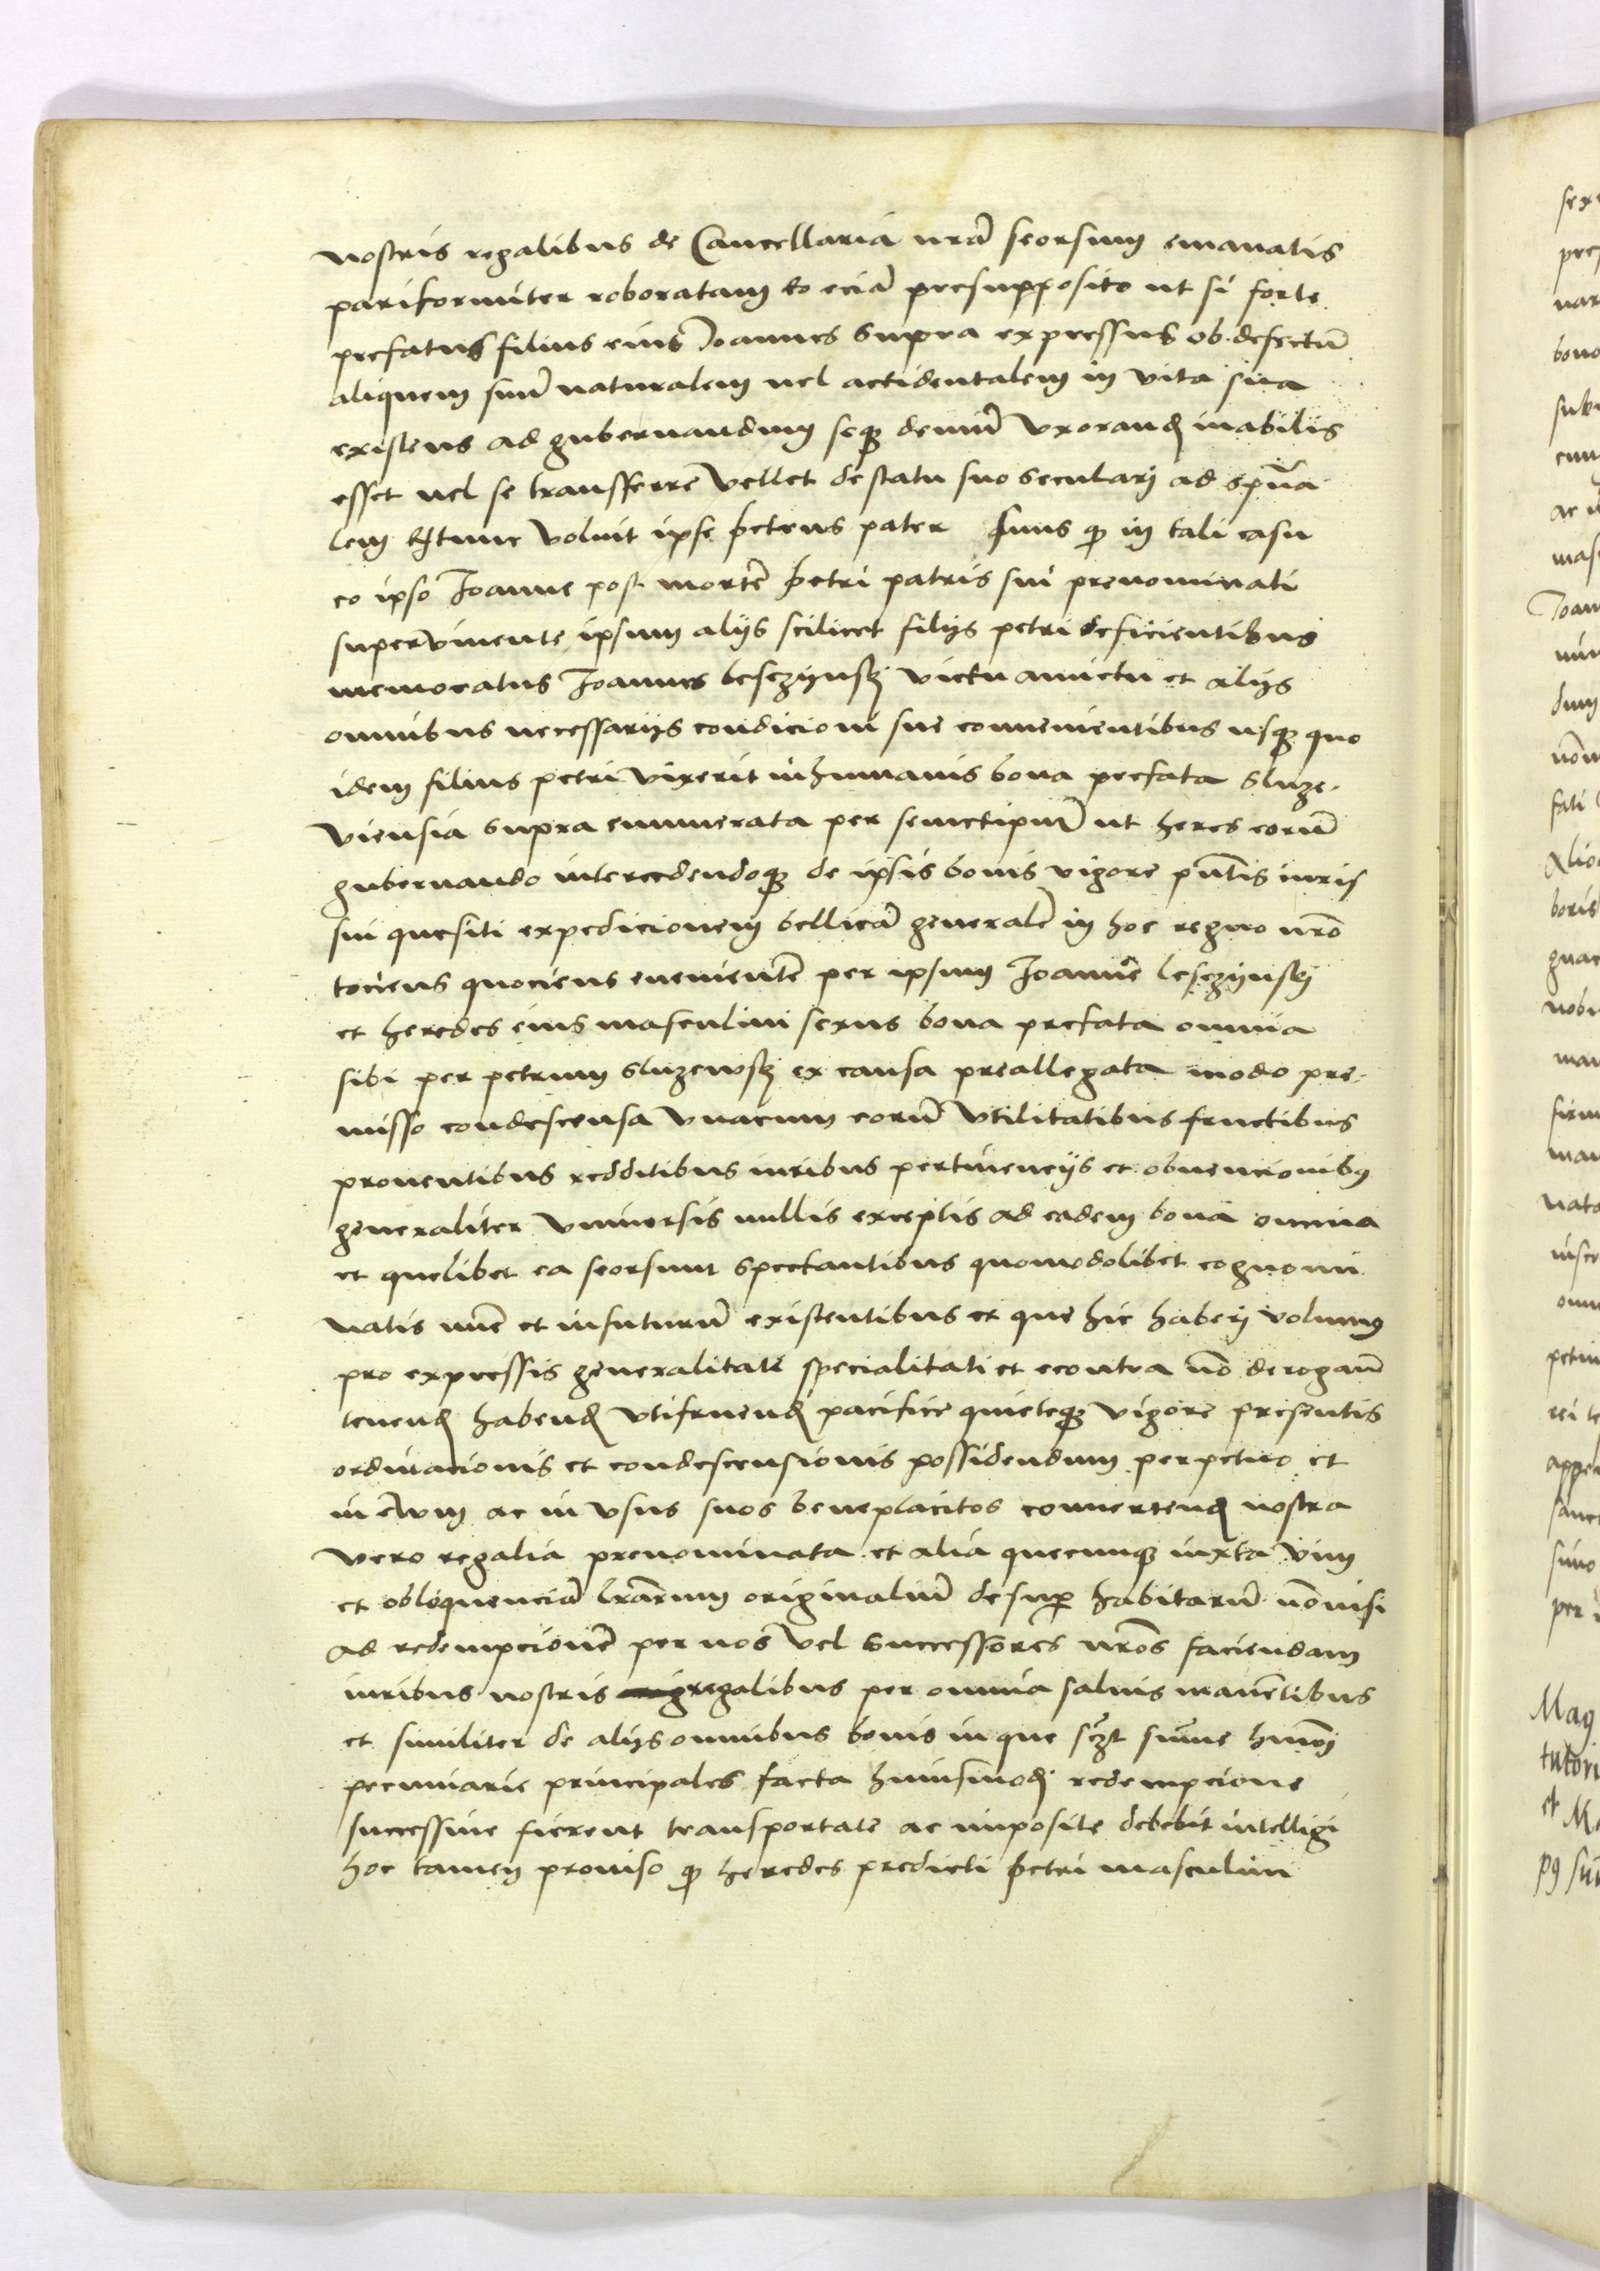 nostris regalibus de Cancellaria nrã seorsum emanatis
pariformiter roboratam Eo eciã presupposito ut si forte
prefatus filius eius Joannes supra expressus ob defectũ
aliquem suũ naturalem uel accidentalem in vita sua
existens ad gubernandum seqꝫ demũ vxorandꝭ inabilis
esset uel se transferre vellet de statu suo seculari ad spũa
lem Extunc voluit ipse petrus pater suus qꝫ in tali casu
eo ipso Joanne post mortẽ petri patris sui prenominati
superviuente ipsum alijs scilicet filijs petri deficientibus
memoratus Joannes lesczijnskj victu amictu et alijs
omnibus necessarijs condicioni sue conuenientibus usqꝫ quo
idem filius petri vixerit inhumanis bona prefata sluze
viensia supra enumerata per semetipsũ ut heres eorũ
gubernando intercedendoqꝫ de ipsis bonis vigore pñtis iuris
sui quesiti expedicionem bellicã generalẽ in hoc regno nrõ
tociens quociens euenientẽ per ipsum Joannẽ lesczijnskj
et heredes eius masculini sexus bona prefata omnia
sibi per petrum sluzewskj ex causa preallegata modo pre
misso condescensa vnacum eorũ vtilitatibus fructibus
prouentibus redditibus iuribus pertinencijs et obuencionibꝰ
generaliter vniuersis nullis exceptis ad eadem bona omnia
et quelibet ea seorsum spectantibus quomodolibet cognomi
natis nũc et infuturũ existentibus et que hic haberj volumꝰ
pro expressis generalitati specialitati et econtra nõ derogañ
tenendꝭ habendꝭ vtifruendꝭ pacifice quieteqꝫ vigore presentis
ordinacionis et condescensionis possidendum perpetuo et
in ewm ac in vsus suos beneplacitos conuertendꝭ nostra
vero regalia prenominata et alia quecunqꝫ iuxta vim
et obloquenciã lrãrum originaliũ desuper habitarũ nõnisi
ad redempcionẽ per nos vel successores nrõs faciendam
iuribus nostris regalibus per omnia saluis manẽtibus
et similiter de alijs omnibus bonis in que sczt sũme hmõi
pecuniarie principales facta huiusmodj redempcione
successiue fierent transportate ac imposite debebit intelligi
hoc tamen prouiso qꝫ heredes predicti petri masculini